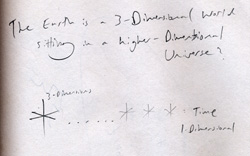 The Earth is a 3-Dimensional World
sitting in a higher-Dimentional
Universe?
3-Dimensions
Time
1-Dimensional